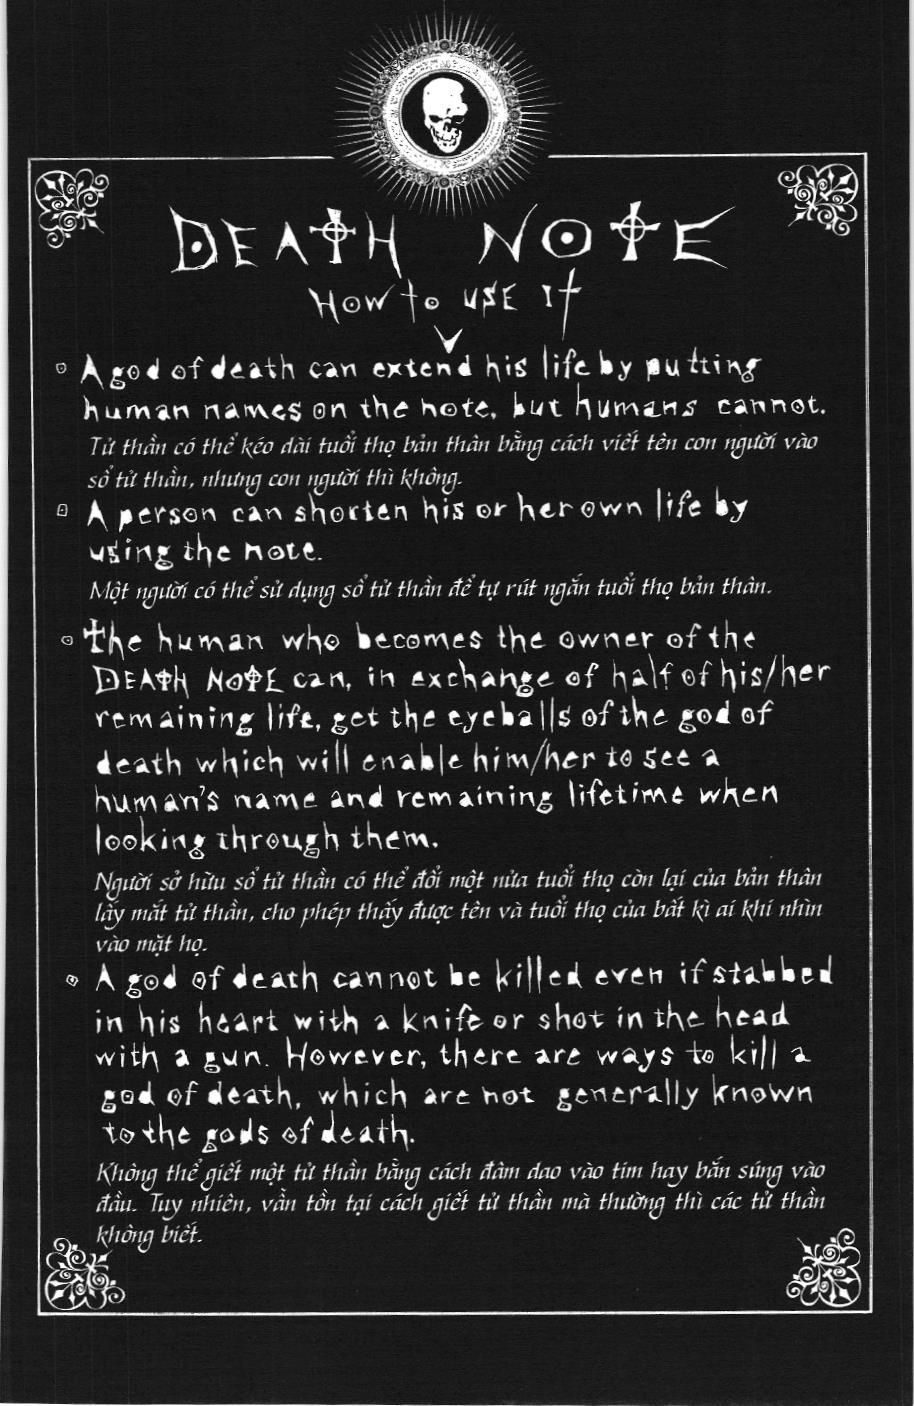 DEATH NOTE
HOW to USE It
A god of death can extend his life by putting
human names on the note, but humans cannot.
Tử thần có thể kéo dài tuổi thọ bản thân bằng cách viết tên con người vào
sổ tử thần, nhưng con người thì không.
A person can shorten his or her own life by
using the note.
Một người có thể sử dụng sổ tử thần để tự rút ngắn tuổi thọ bản thân.
the human who becomes the owner of the
DEATH NOTE can, in exchange of half of his/her
remaining life, get the eyeballs of the god of
death which will enable him/her to see a
human's name and remaining lifetime when
looking through them.
Người sở hữu sổ tử thần có thể đổi một nửa tuổi thọ còn lại của bản thân
lấy mắt tử thần, cho phép thấy được tên và tuổi thọ của bất kì ai khi nhìn
vào mặt họ.
A god of death cannot be killed even if stabbed
in his heart with a knife or shot in the head
with a gun. However, there are ways to kill a
god of death, which are not generally known
to the gods of death.
Không thể giết một tử thần bằng cách đâm dao vào tim hay bắn súng vào
đầu. Tuy nhiên, vẫn tồn tại cách giết tử thần mà thường thì các tử thần
không biết.